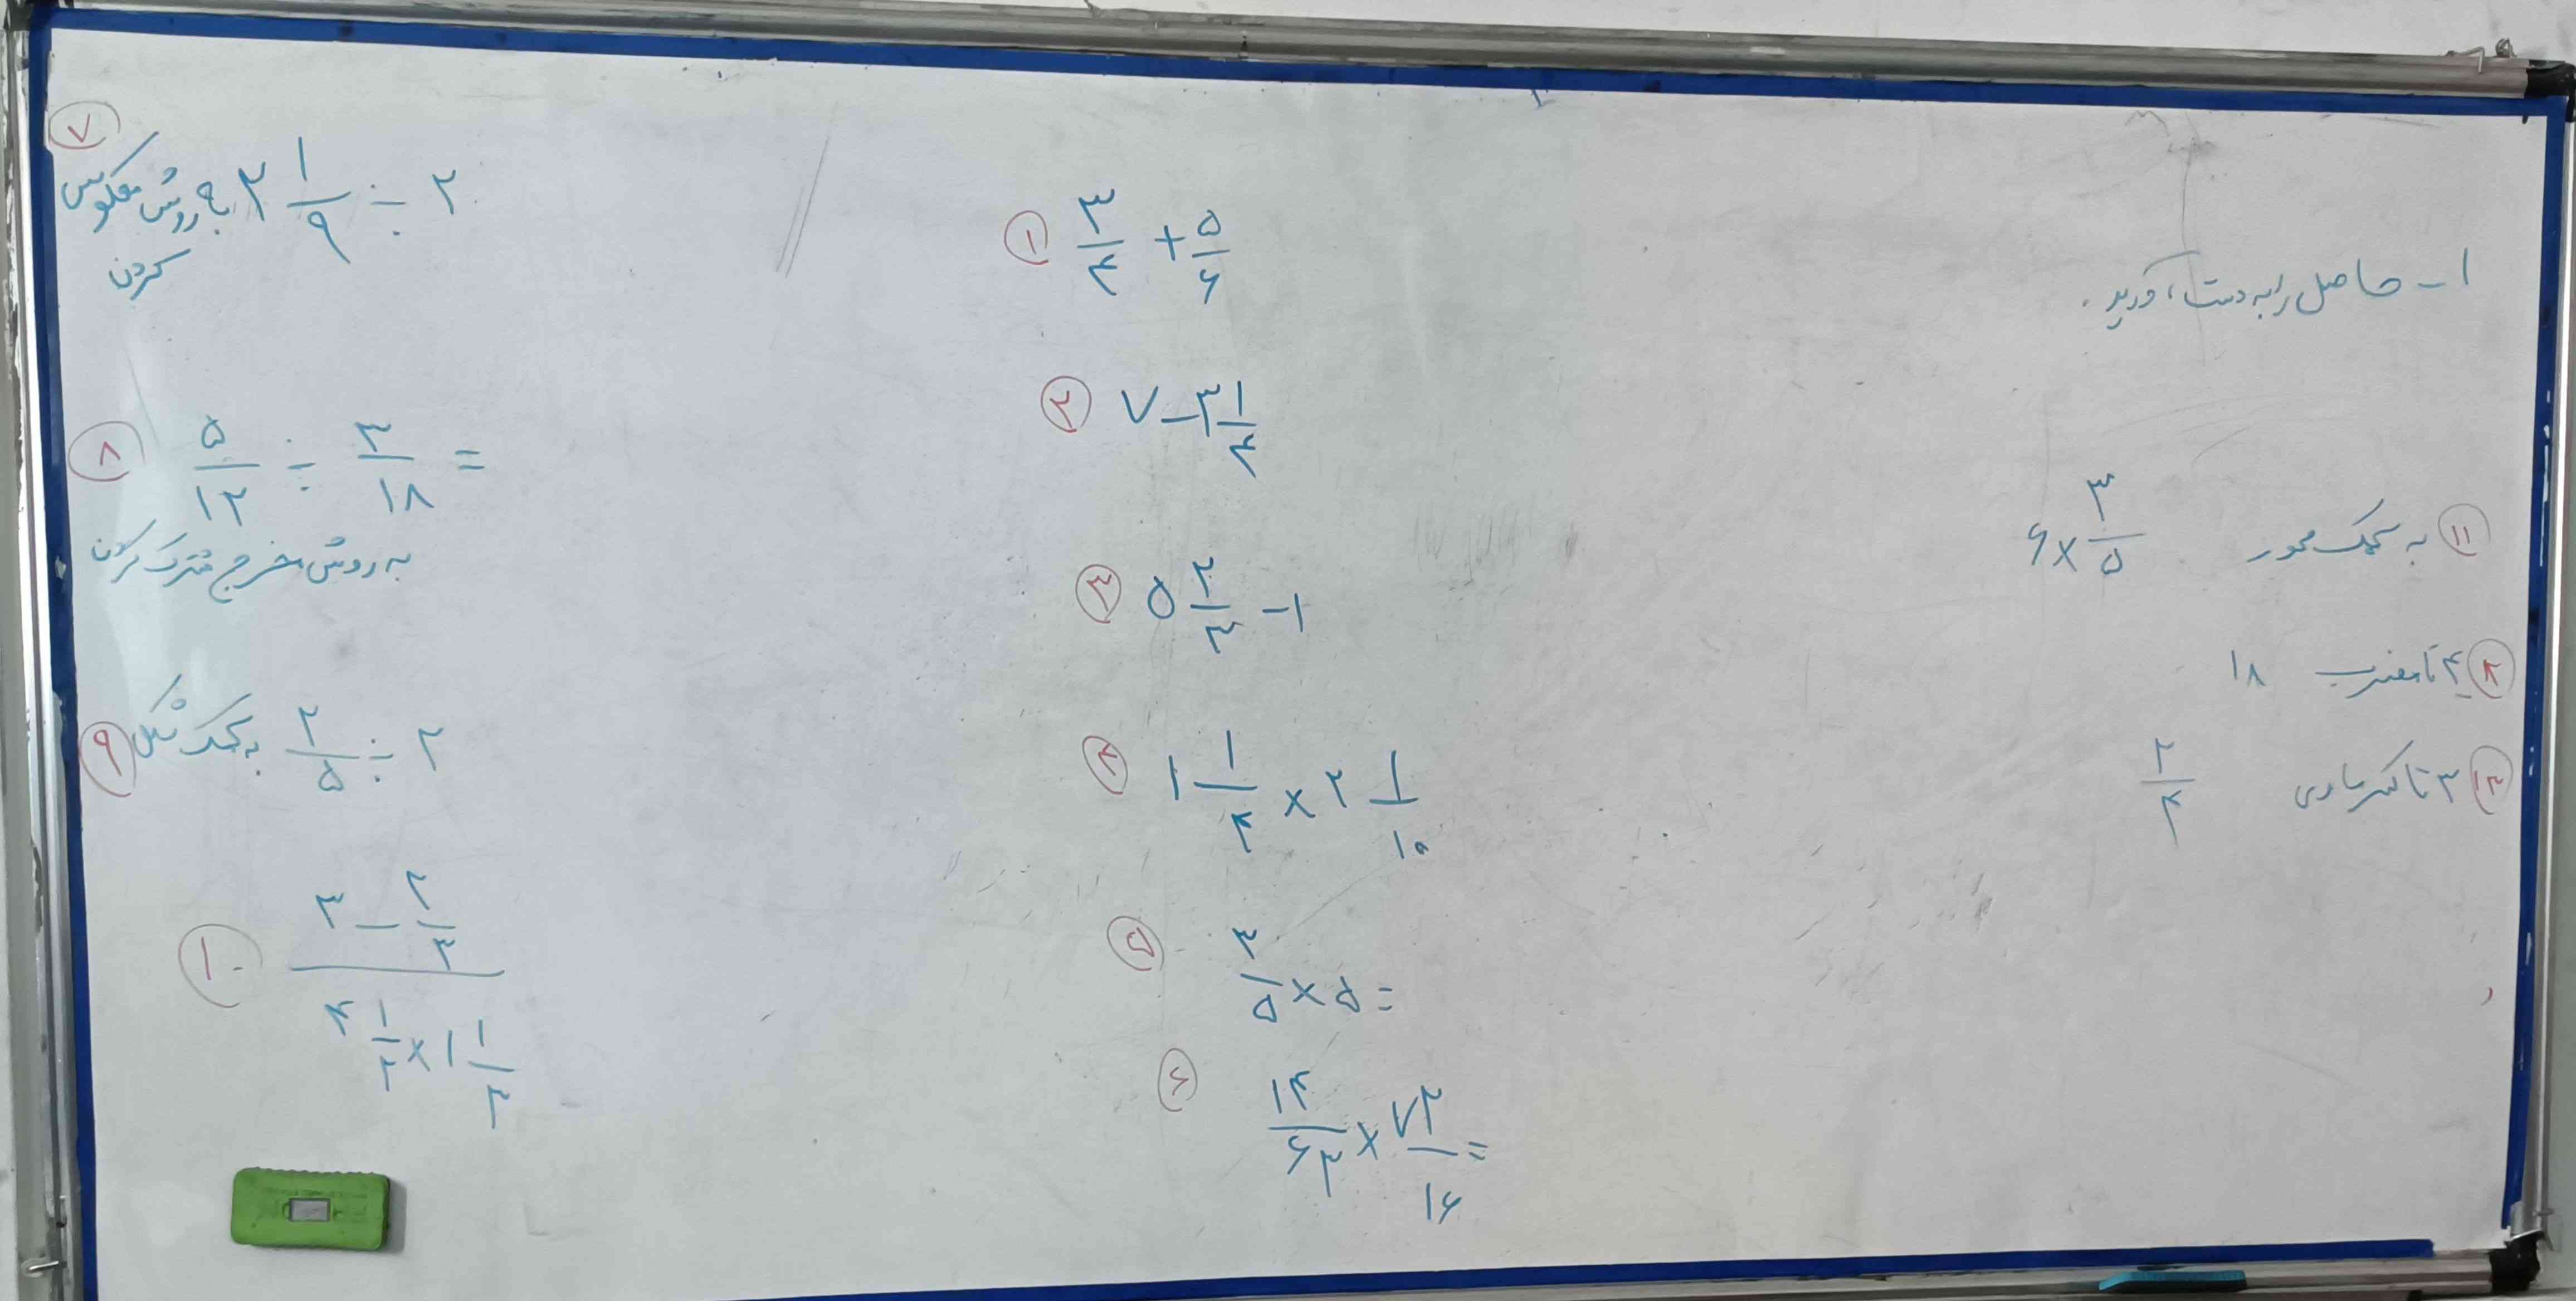 ۱- حاصل را به دست آورید.
① ۳/۴ + ۵/۶
② ۷ - ۳ ۱/۴
③ ۵ ۲/۳ - ۱
④ ۱ ۱/۴ × ۲ ۱/۱۰
⑤ ۳/۵ × ۵ =
⑥ ۱۴/۶۳ × ۷۲/۱۶ =
⑦ ۲ ۱/۹ ÷ ۲ به روش معکوس
کردن
⑧ ۵/۱۲ ÷ ۳/۱۸ =
به روش مخرج مشترک کردن
⑨ ۲/۵ ÷ ۲ به کمک شکل
⑩ (۳ - ۲/۳) / (۴ ۱/۲ × ۱ ۱/۳)
⑪ به کمک محور ۶ × ۳/۵
۴ تا مضرب ۱۸
⑬ ۳ تا کسر مساوی ۲/۴